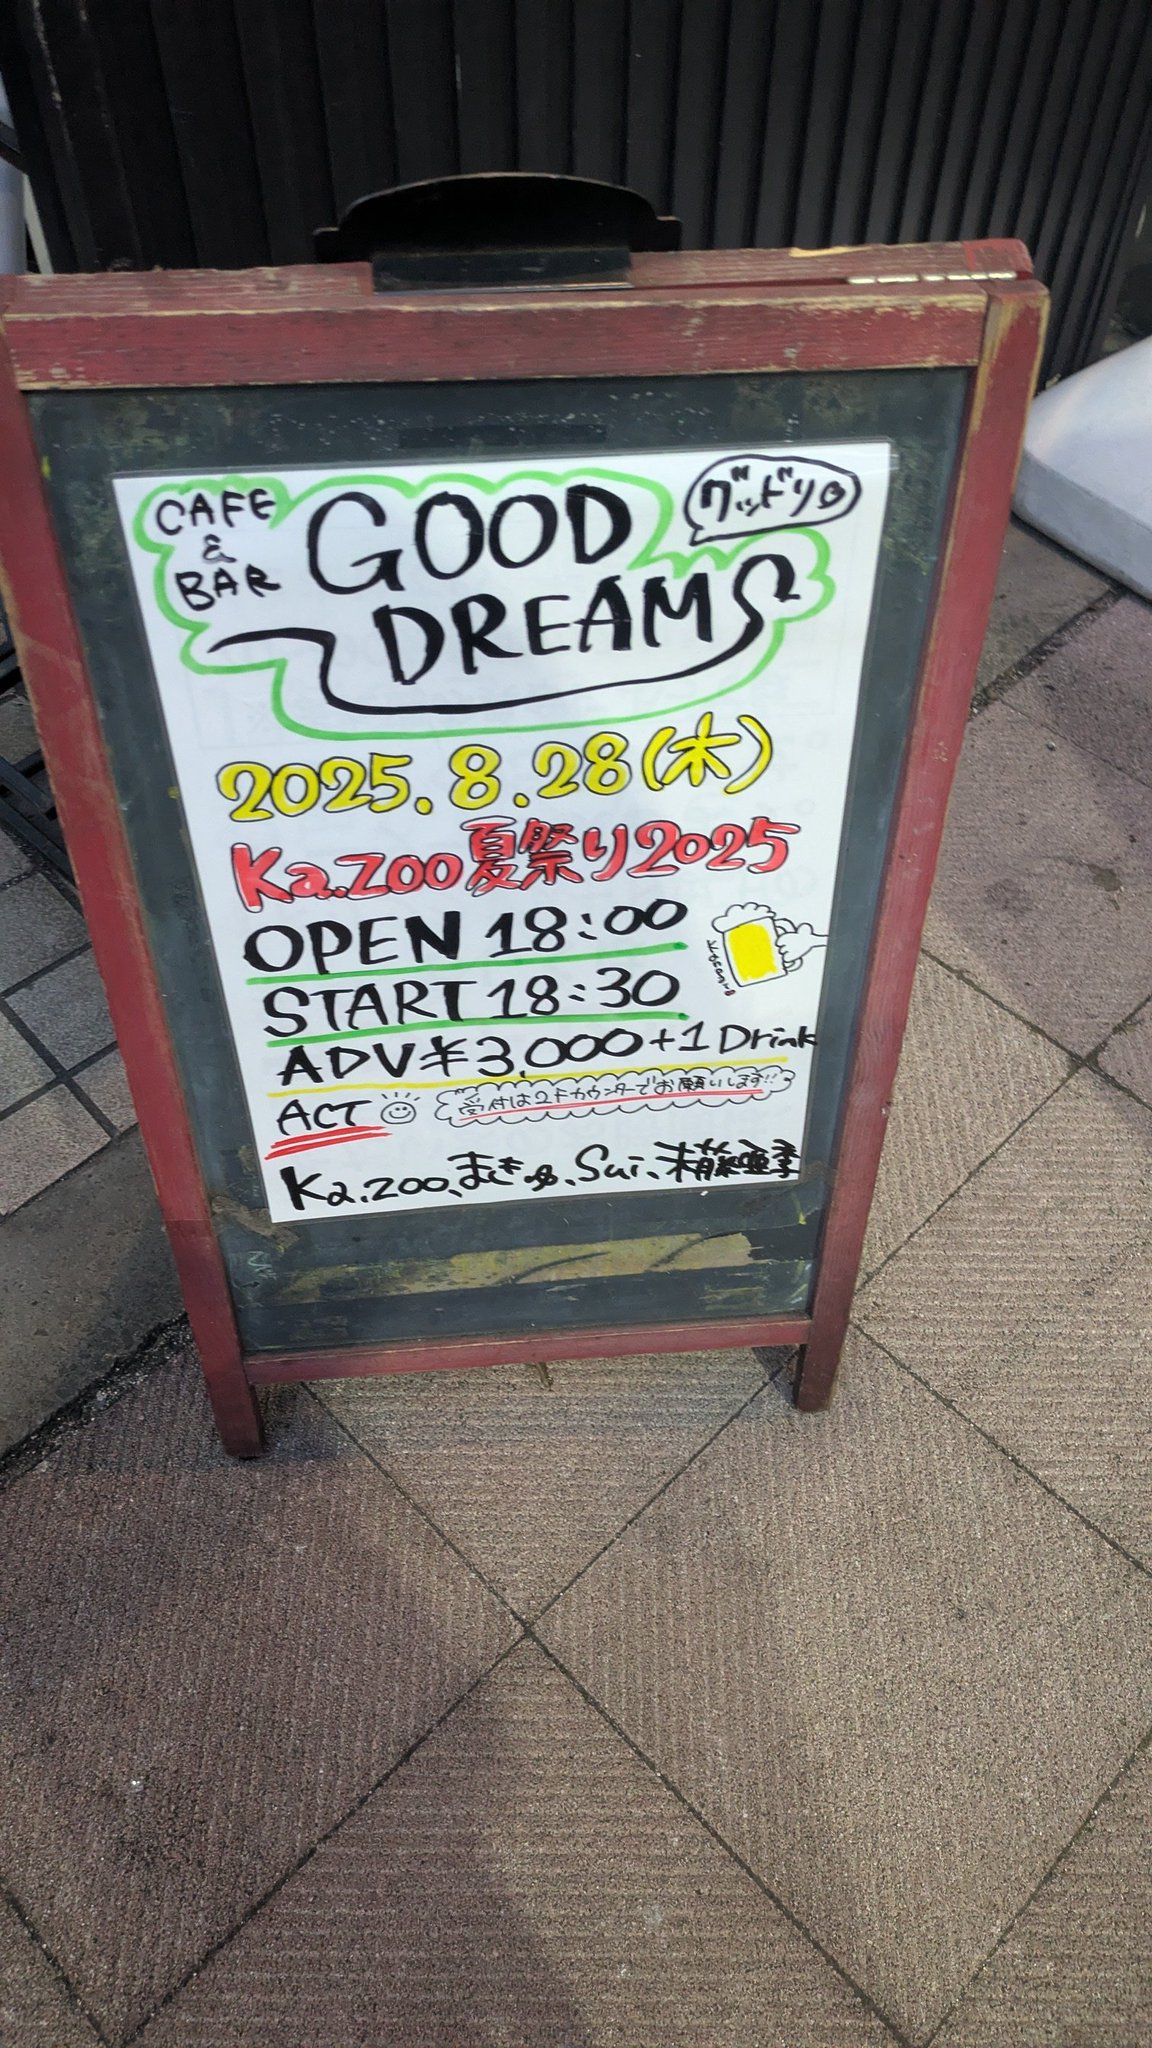 CAFE
&
BAR
GOOD
DREAMS
グッドリ
2025.8.28(木)
Ka.Zoo夏祭り2025
OPEN 18:00
START 18:30
ADV¥3,000+1 Drink
ACT
受付は2Fカウンターでお願いします!!
Ka.zoo、まきゅ、Sui、